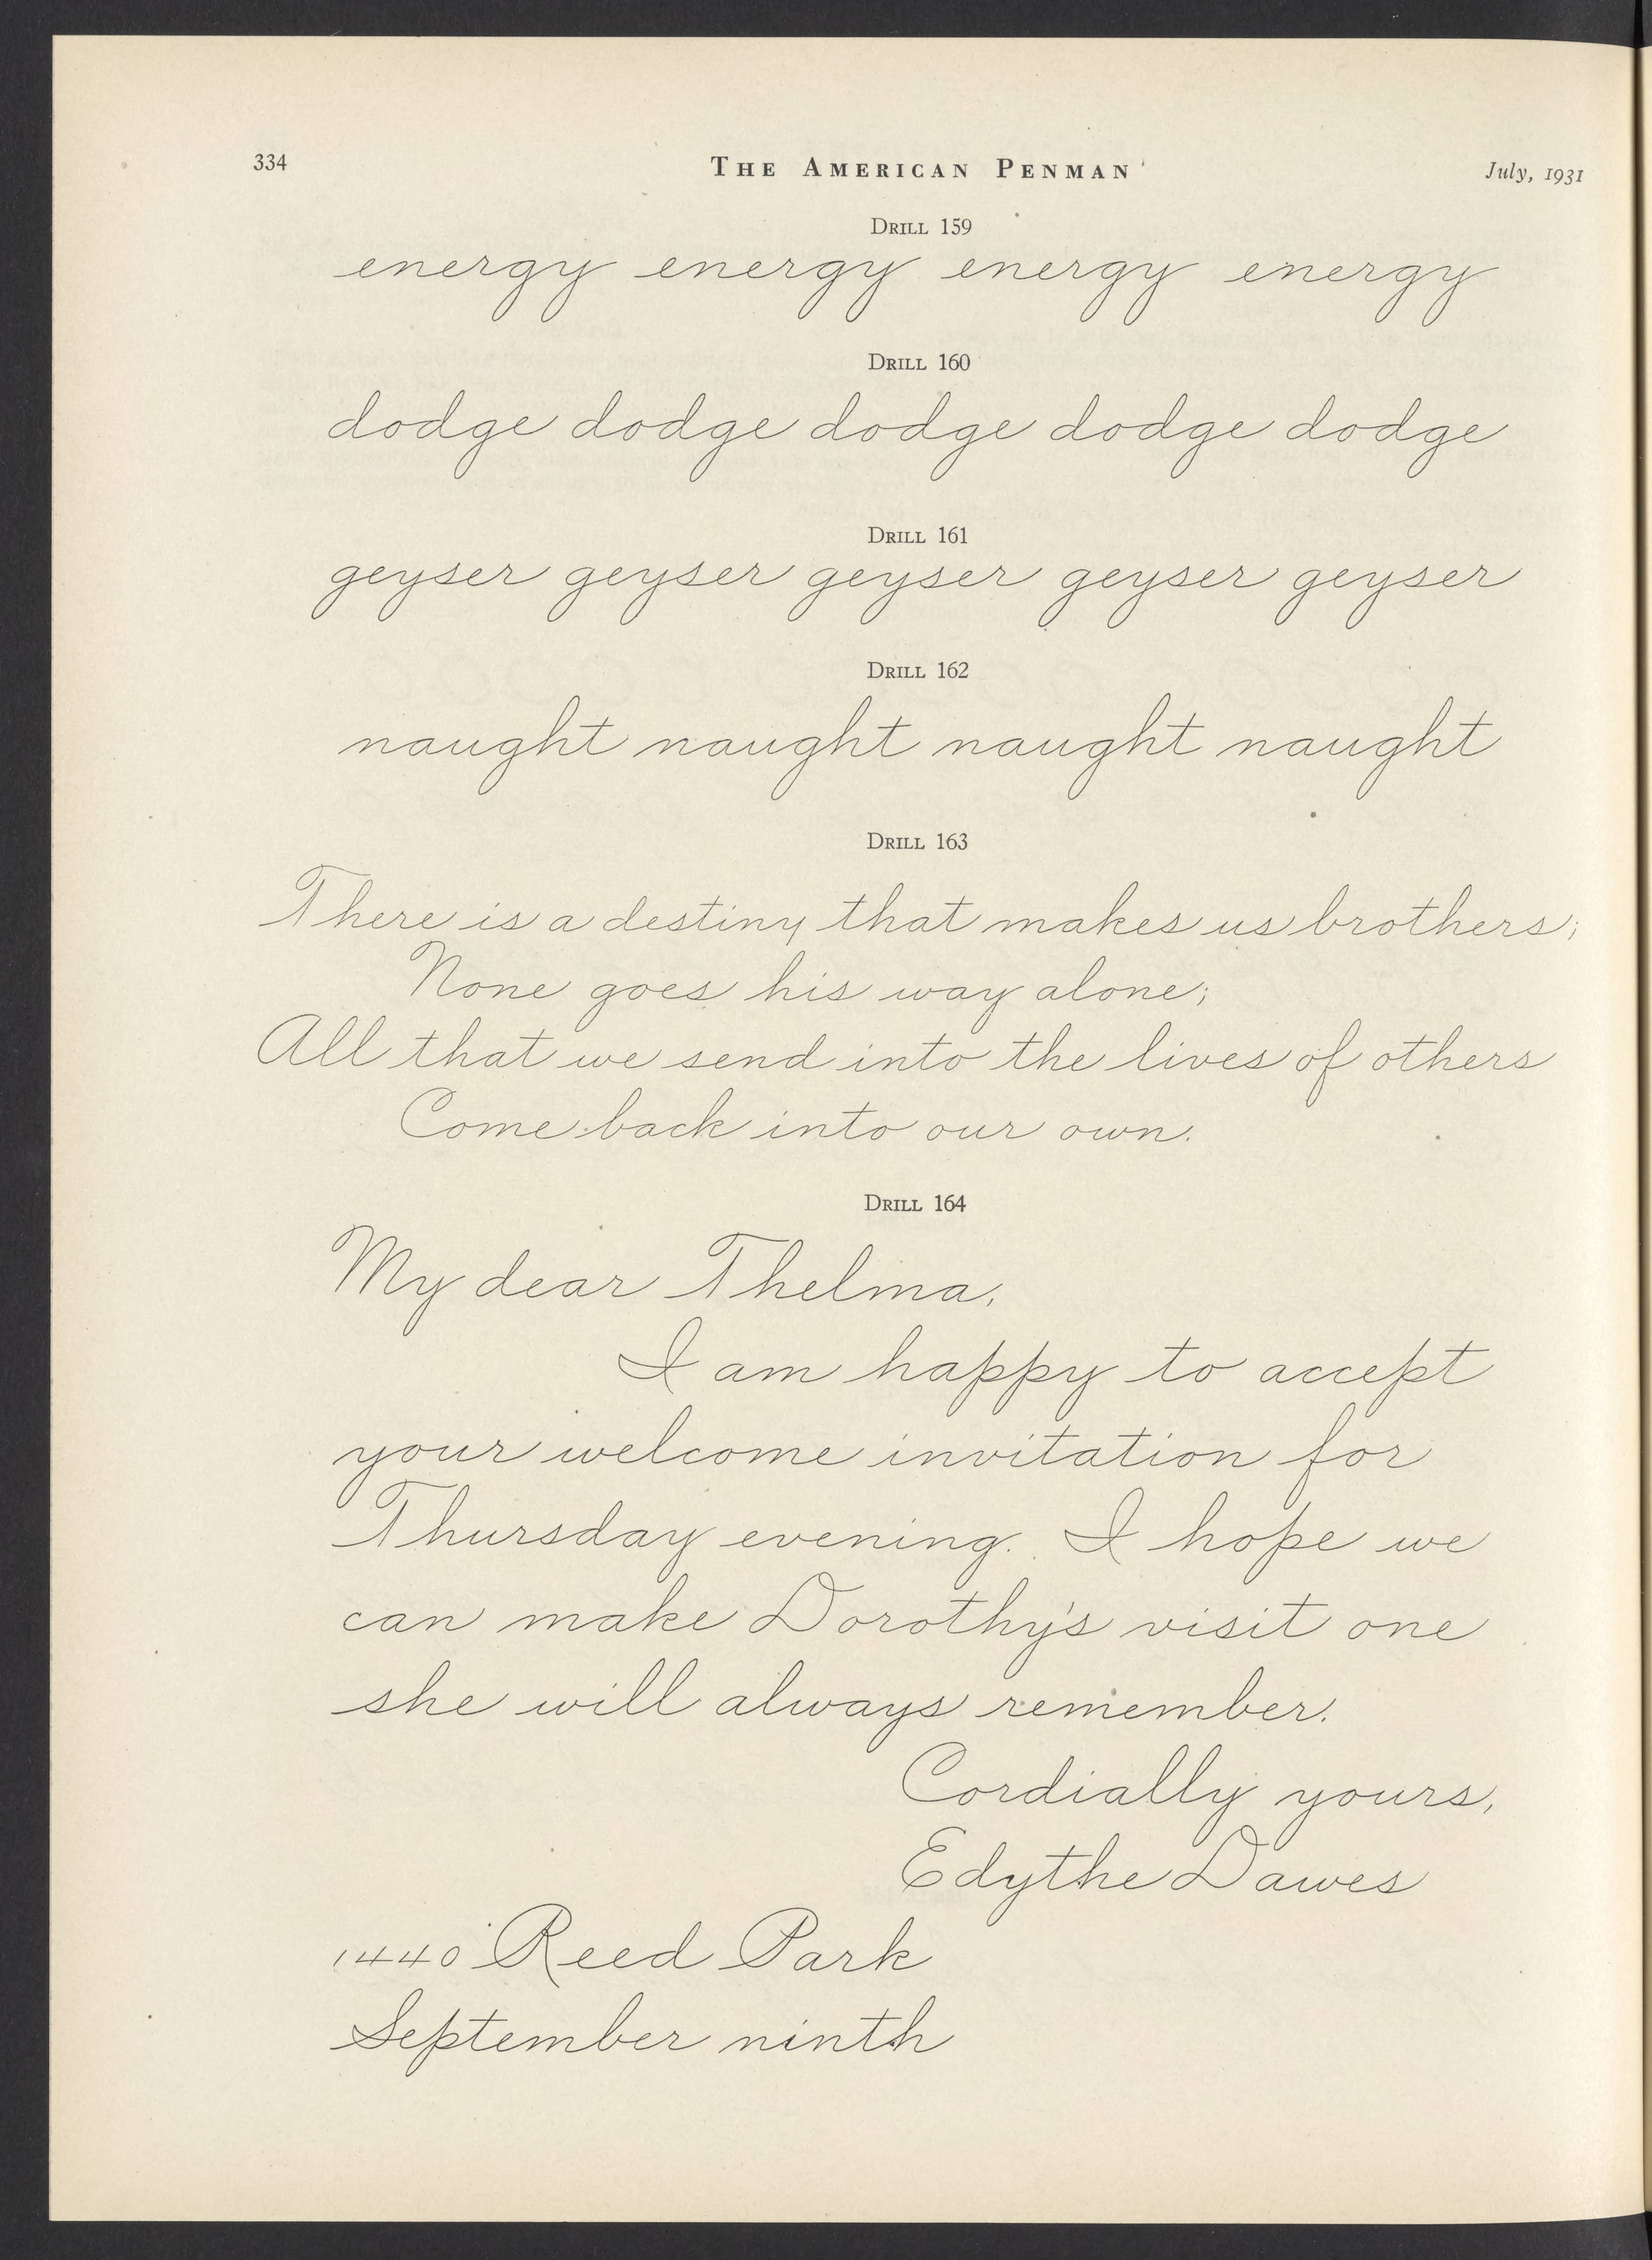 334 THE AMERICAN PENMAN July, 1931
DRILL 159
energy energy energy energy
DRILL 160
dodge dodge dodge dodge dodge
DRILL 161
geyser geyser geyser geyser geyser
DRILL 162
naught naught naught naught
DRILL 163
There is a destiny that makes us brothers;
None goes his way alone;
All that we send into the lives of others
Come back into our own.
DRILL 164
My dear Thelma,
I am happy to accept
your welcome invitation for
Thursday evening. I hope we
can make Dorothy's visit one
she will always remember.
Cordially yours,
Edythe Dawes
1440 Reed Park
September ninth